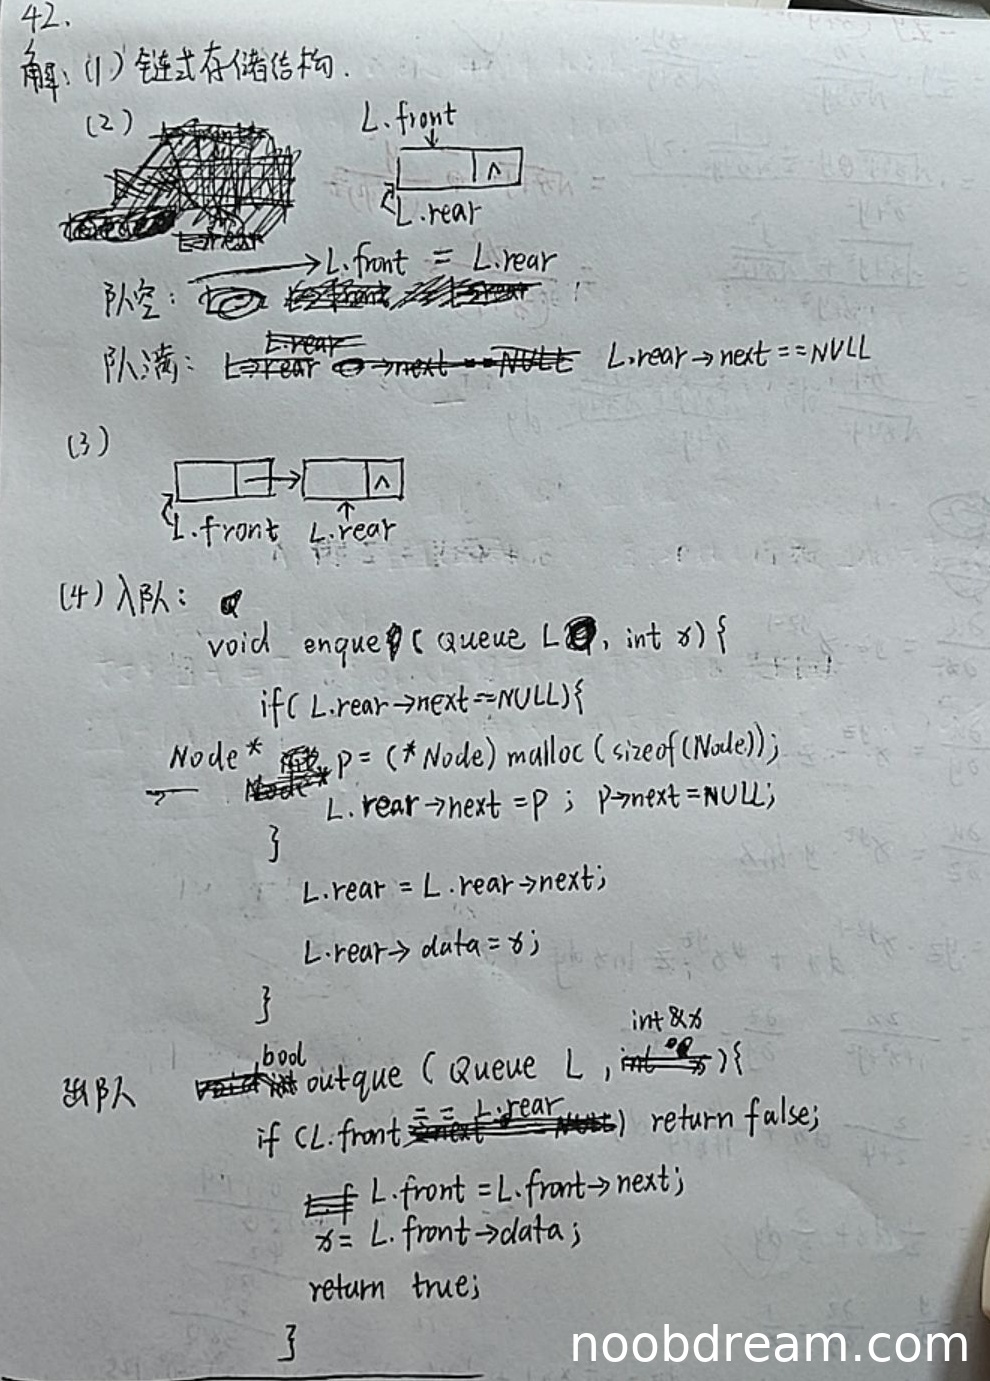 42.
解:(1)链式存储结构.
(2)
L.front
∧
L.rear
L.front = L.rear
队空:
队满: L.rear→next==NULL
(3)
∧
L.front L.rear
(4)入队:
void enque( Queue L, int x){
if( L.rear→next==NULL){
Node* p=(*Node) malloc(sizeof(Node));
L.rear→next=p; p→next=NULL;
}
L.rear = L.rear→next;
L.rear→data=x;
}
出队 bool outque ( Queue L, int &x){
if (L.front == L.rear) return false;
L.front = L.front→next;
x= L.front→data;
return true;
}
noobdream.com